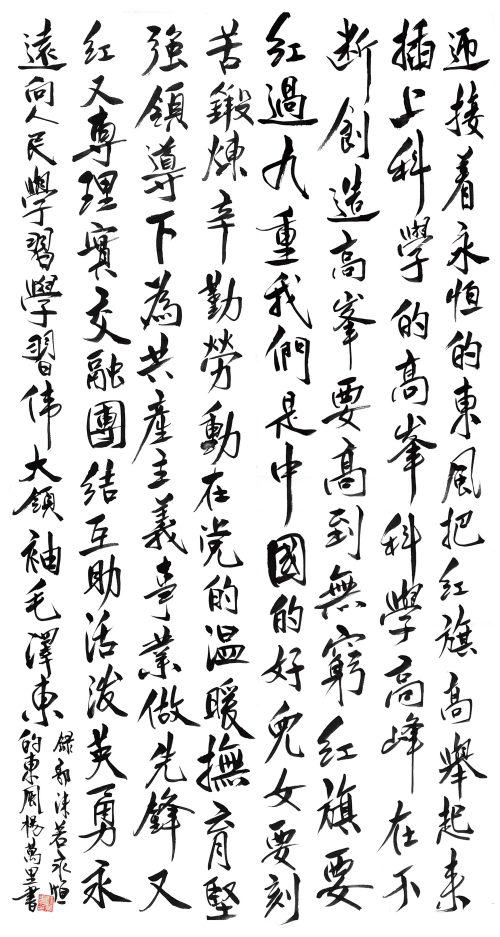 迎接着永恒的東風把紅旗高舉起来
插上科學的高峯科學高峰在不
断創造高峯要高到無窮紅旗要
紅過九重我們是中國的好兒女要刻
苦鍛煉辛勤勞動在党的温暖撫育堅
強領導下為共產主義事業做先鋒又
紅又專理實交融團結互助活泼英勇永
遠向人民學習學習伟大領袖毛澤東
録郭沫若永恒
的東風楊萬里書